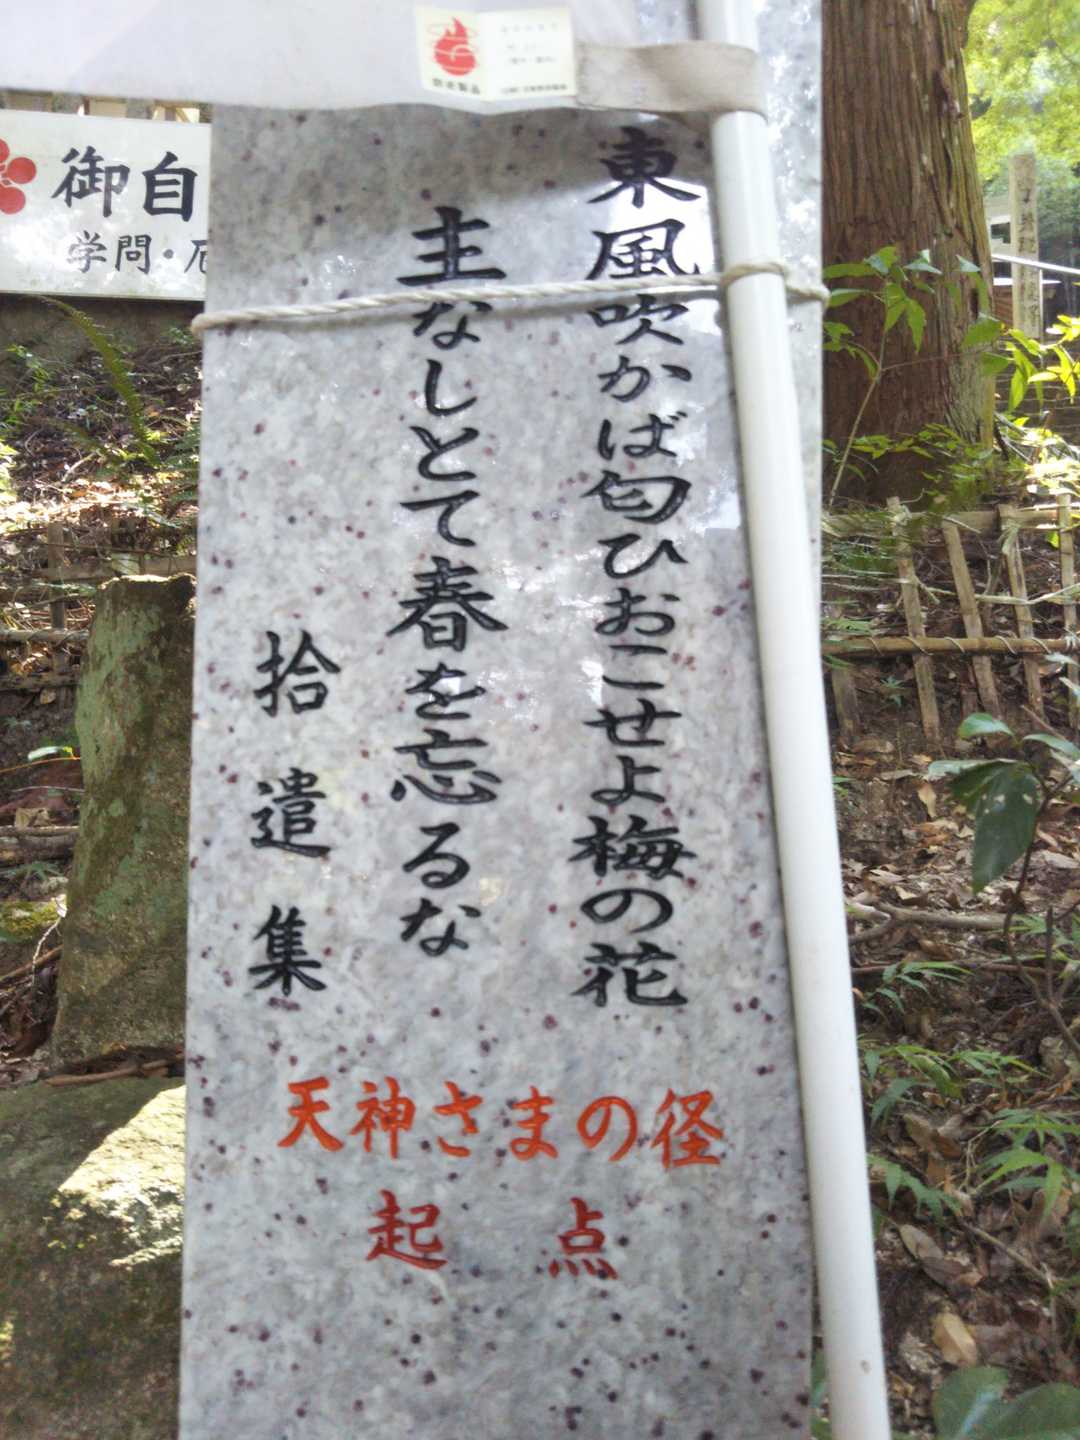 東風吹かば匂ひおこせよ梅の花
主なしとて春を忘るな
拾遣集
天神さまの径
起点
御自
学問・